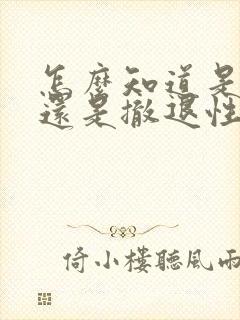 怎麼知道是
還是撤退性
倚小樓聽風雨